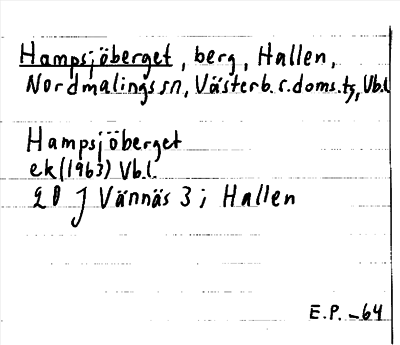 Hampsjöberget, berg, Hallen,
Nordmalings sn, Västerb. s. doms. tg, Vb.l
Hampsjöberget
ek (1963) Vb.l.
20 J Vännäs 3; Hallen
E.P. -64